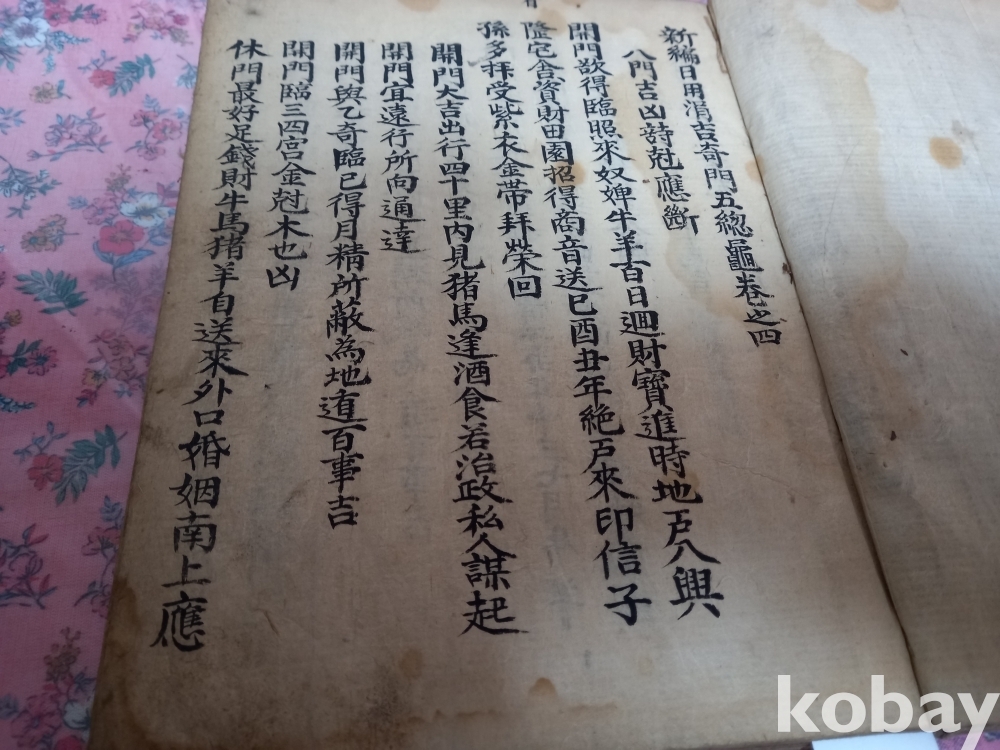 新編日用涓吉奇門五總龜卷之四
八門吉凶詩尅應斷
開門欲得臨照來奴婢牛羊百日廻財寶進時地戸入興
隆宅舍資財田園招得商音送巳酉丑年絶戸來印信子
孫多拜受紫衣金帶拜榮回
開門大吉出行四十里內見猪馬逢酒食若治政私人謀起
開門宜遠行所向通達
開門與乙奇臨己得月精所蔽為地遁百事吉
開門臨三四宮金尅木也凶
休門最好足錢財牛馬猪羊自送來外口婚姻南上應
kobay